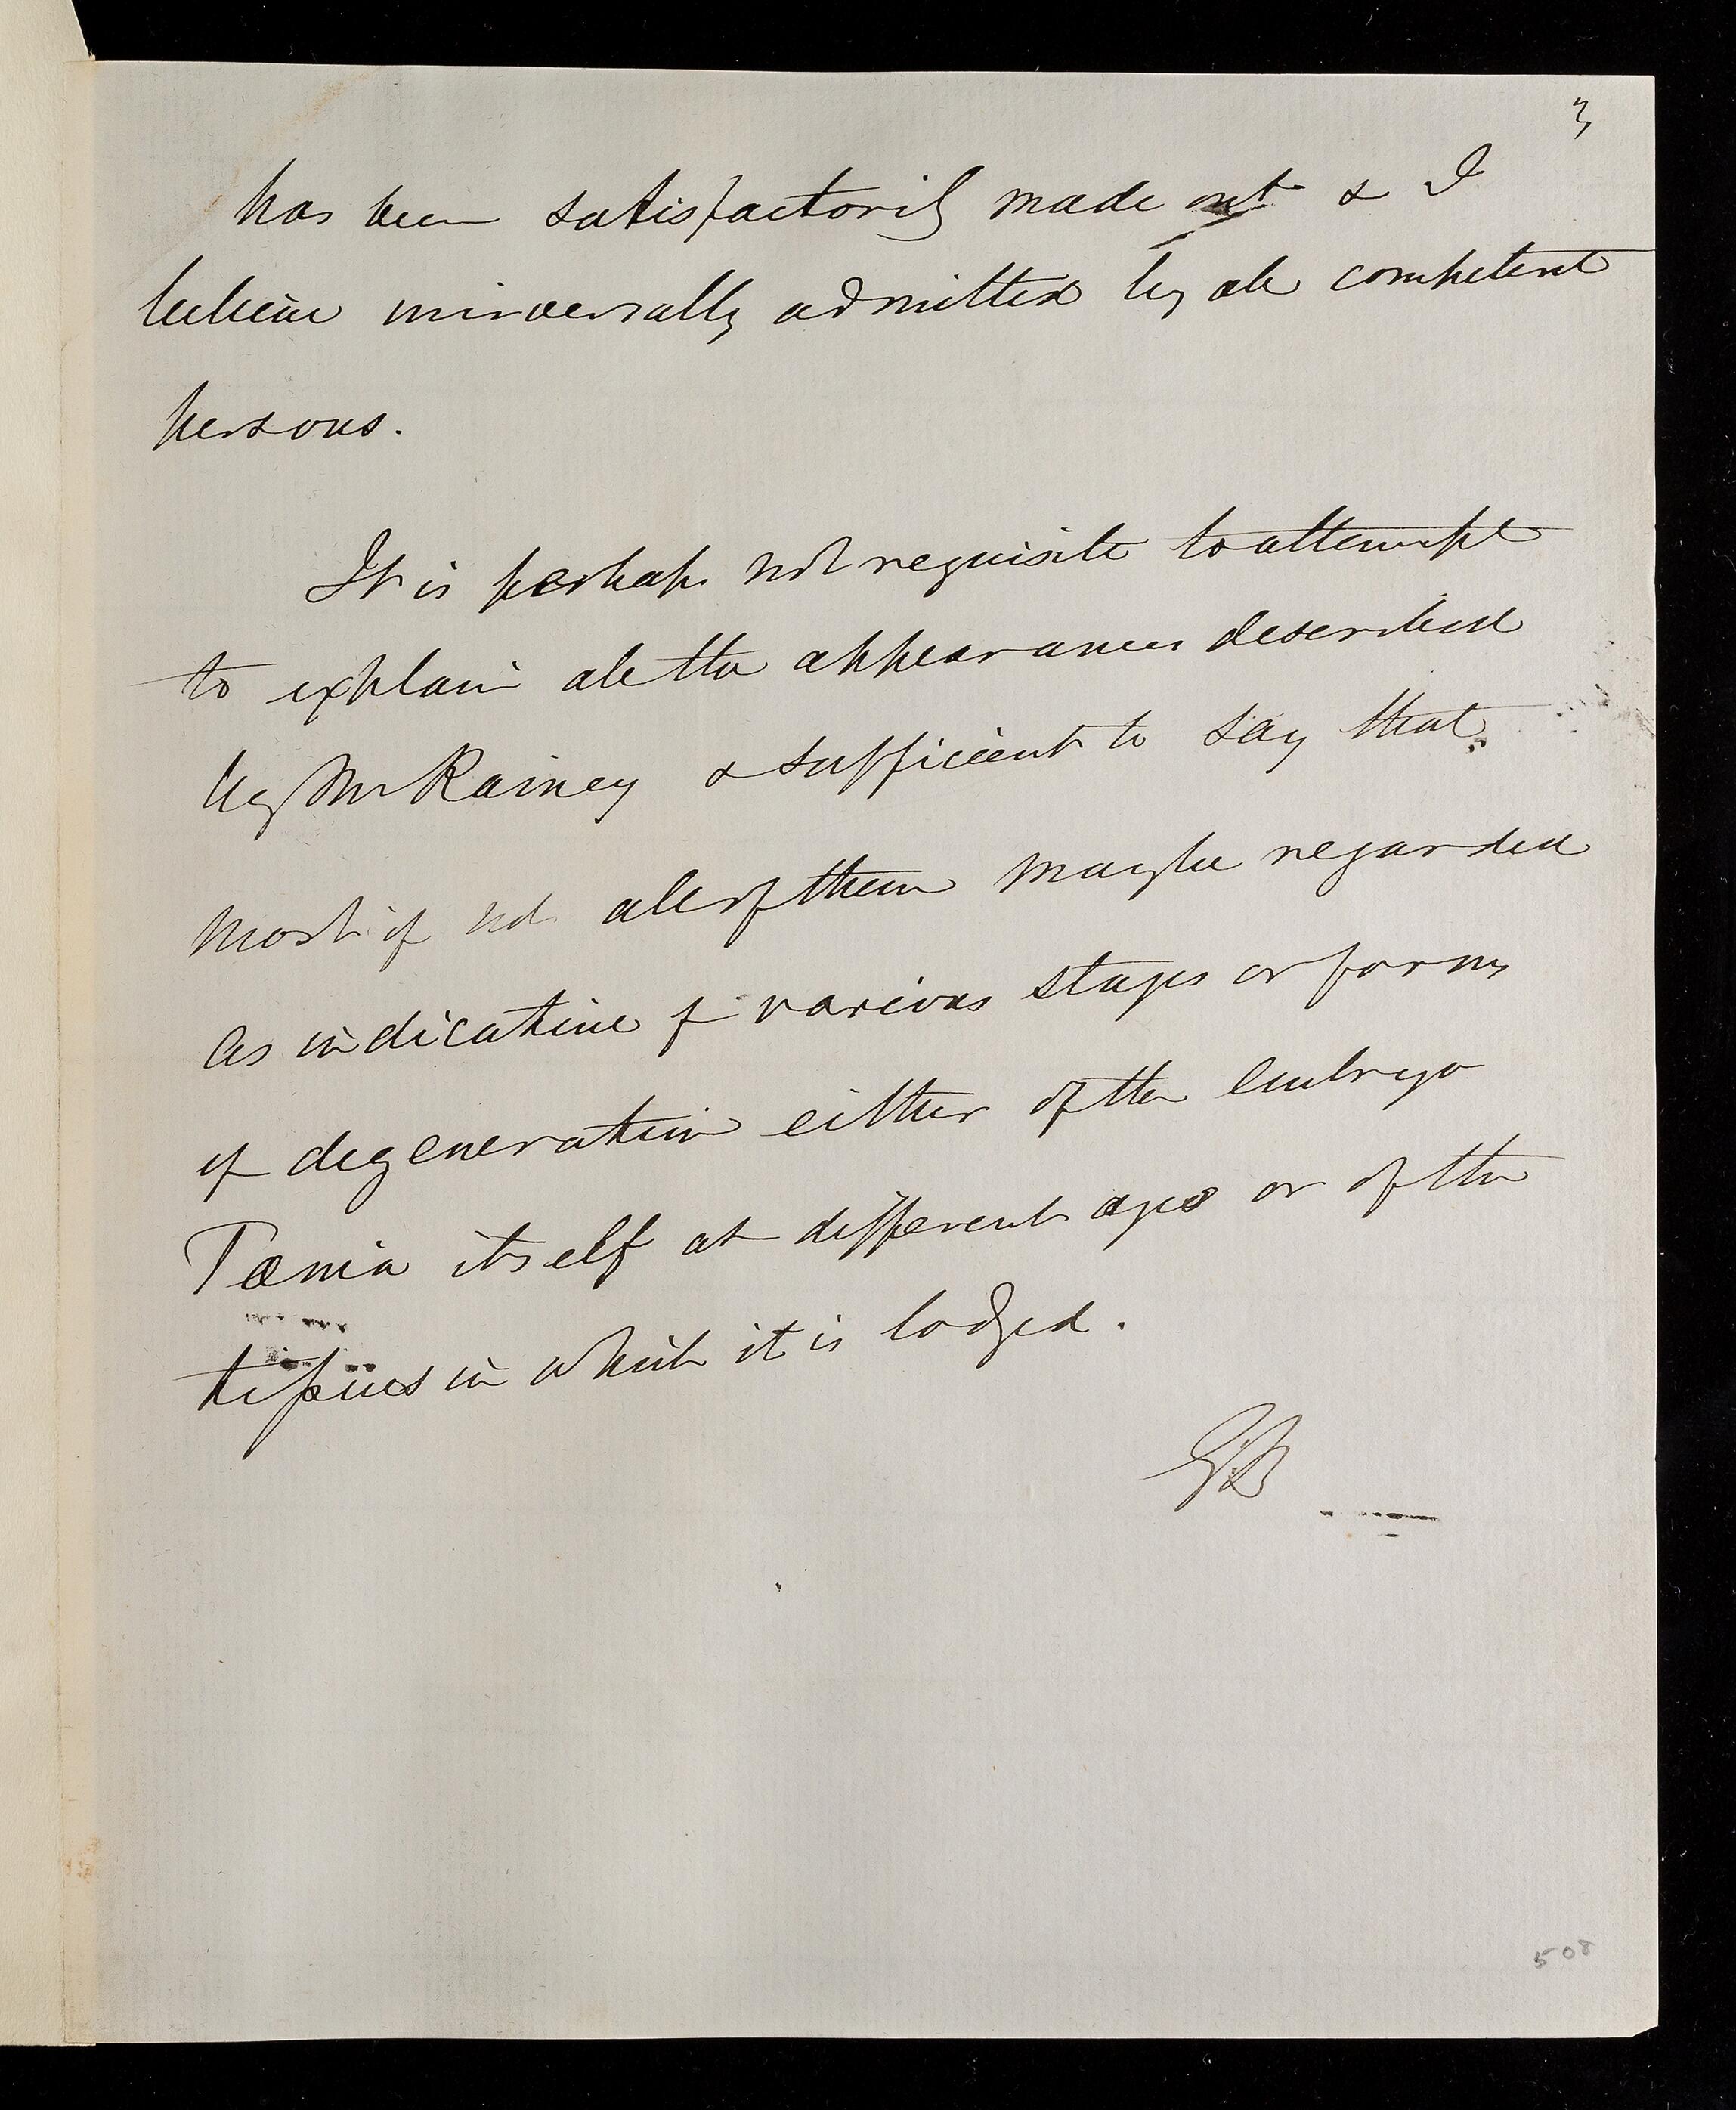 3
has been satisfactorily made out & I
believe universally admitted by all competent
persons.
It is perhaps not requisite to attempt
to explain all the appearances described
by Mr Rainey & sufficient to say that
most if not all of them may be regarded
as indicative of various stages or forms
of degeneration either of the embryo
Tænia itself at different ages or of the
tissues in which it is lodged.
GB
508